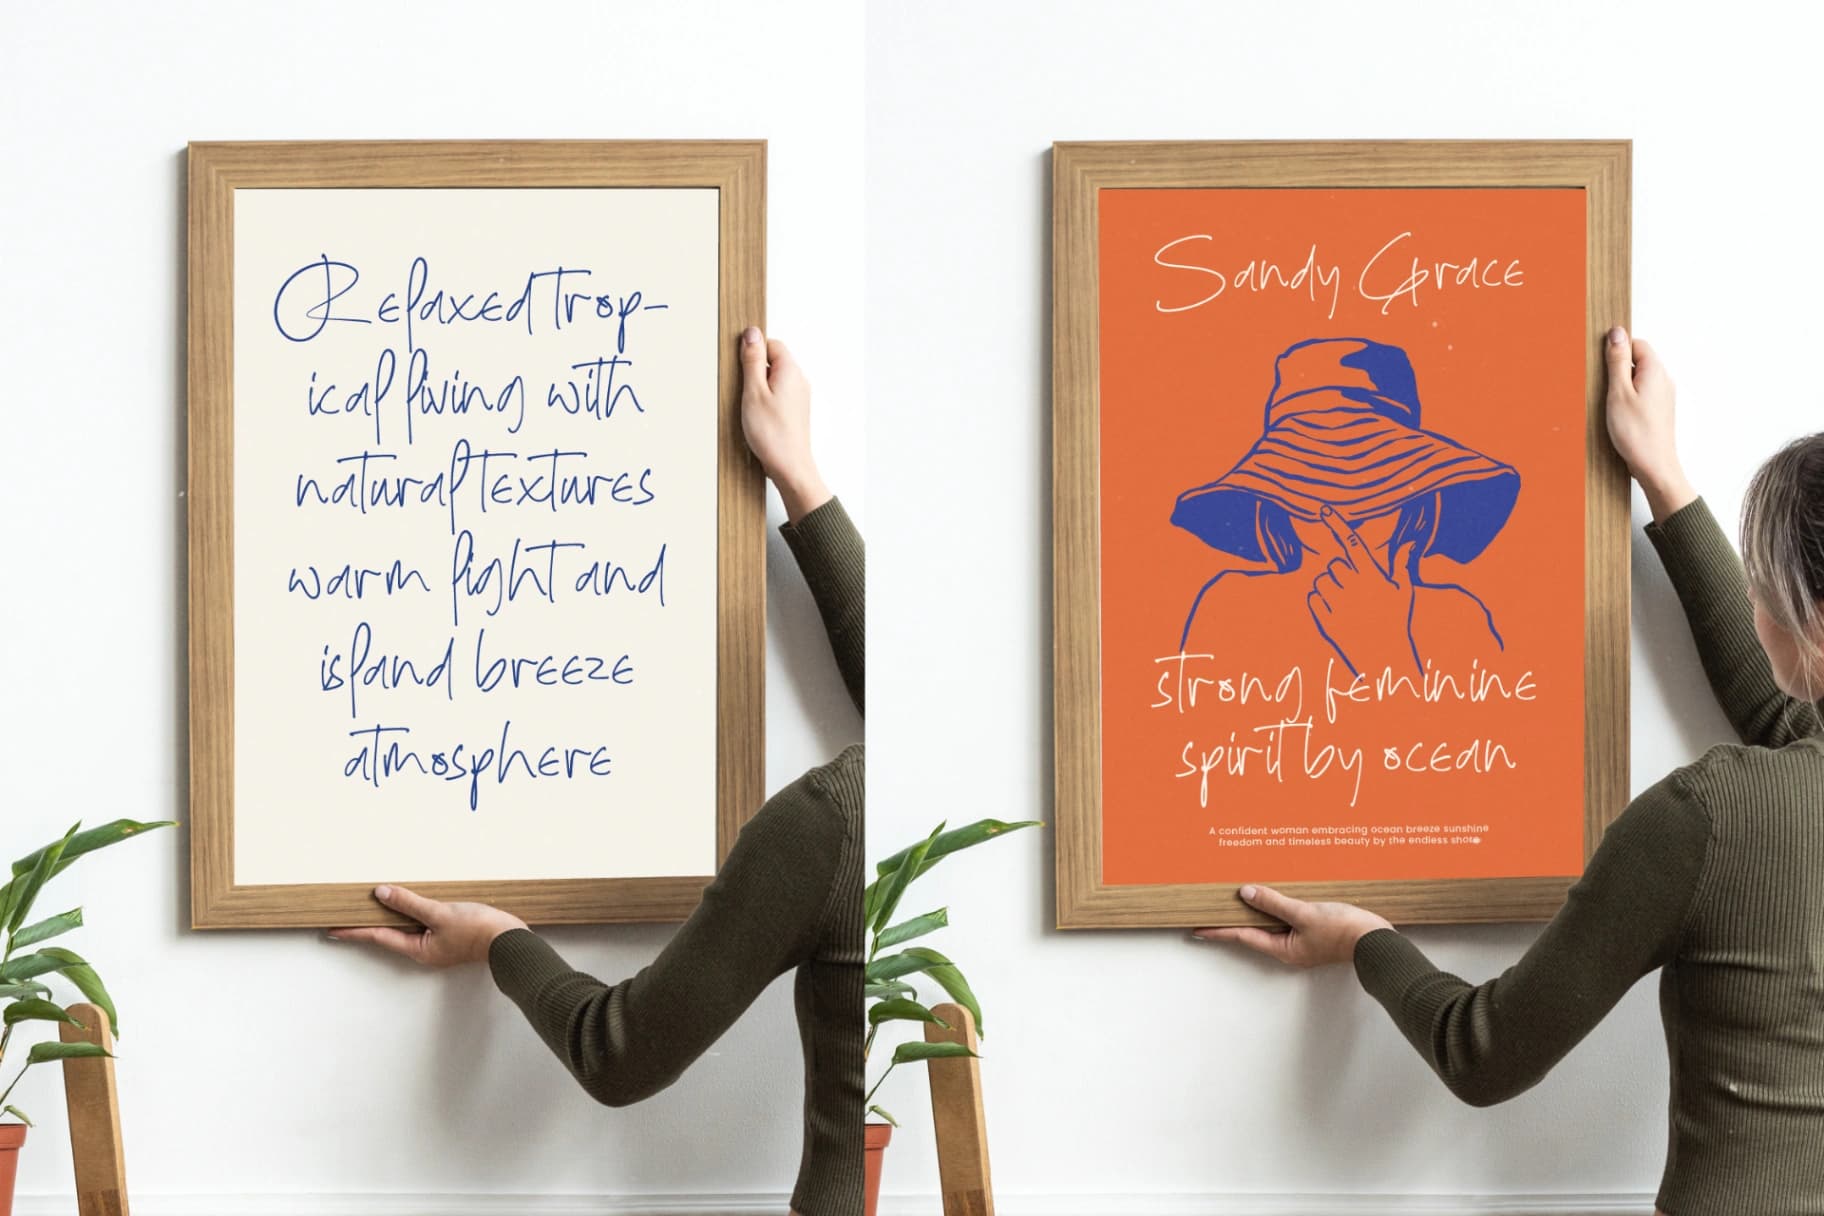 Relaxed trop-
ical living with
natural textures
warm light and
island breeze
atmosphere
Sandy Grace
strong feminine
spirit by ocean
A confident woman embracing ocean breeze sunshine
freedom and timeless beauty by the endless shore